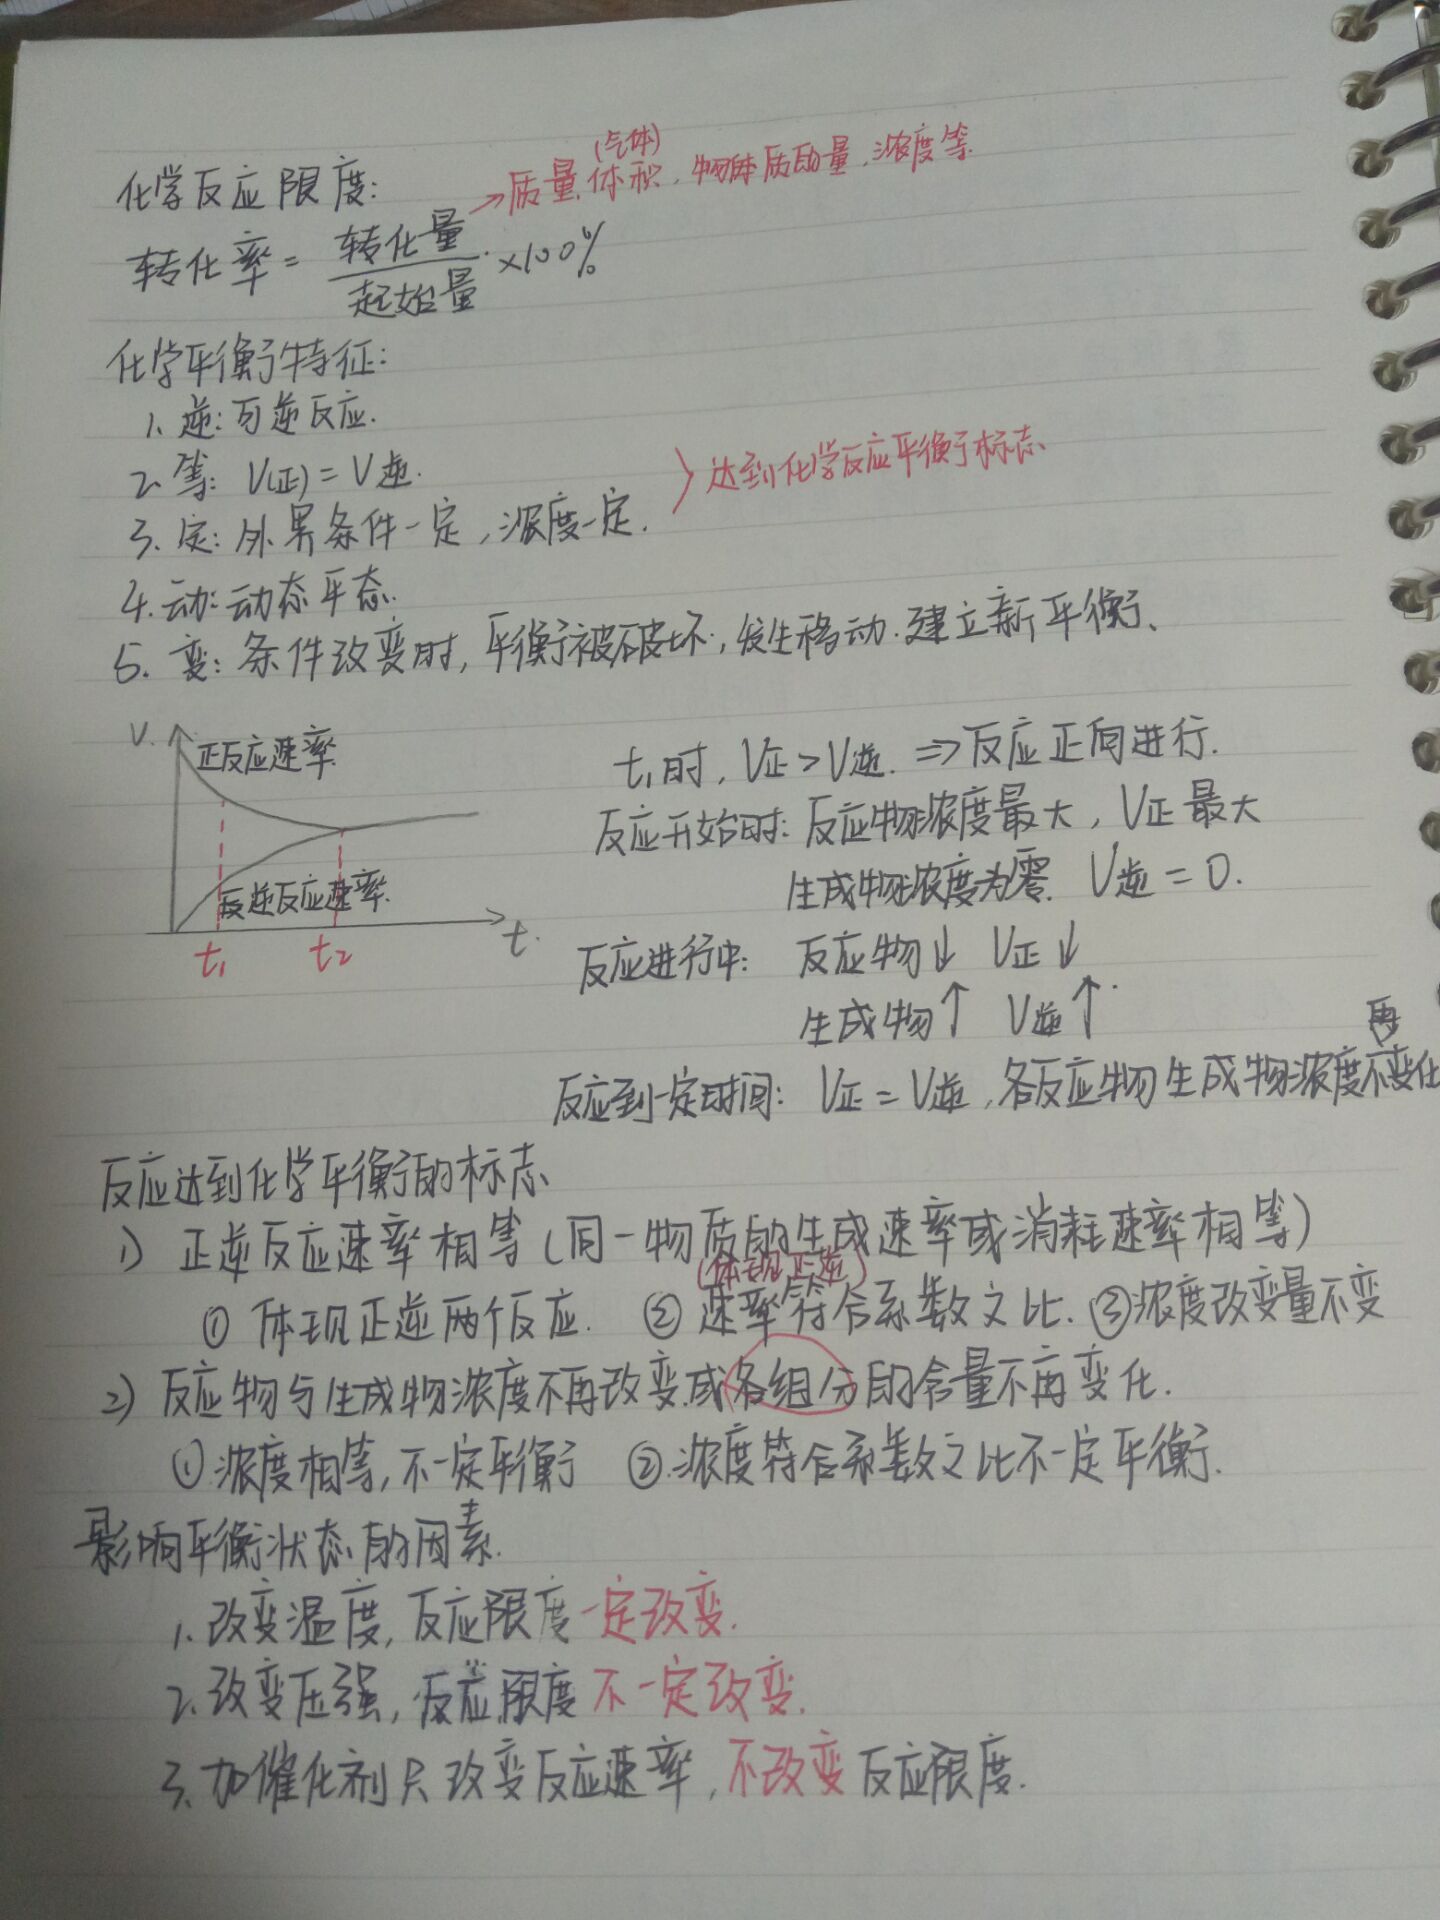 化学反应限度:
→质量,体积,物体质的量,浓度等
(气体)
转化率 = 转化量/起始量 ×100%
化学平衡特征:
1. 逆: 可逆反应.
2. 等: V(正) = V逆.
3. 定: 外界条件一定,浓度一定.
} 达到化学反应平衡标志
4. 动: 动态平态.
5. 变: 条件改变时,平衡被破坏,发生移动.建立新平衡、
V.
正反应速率
反逆反应速率.
t₁ t₂
t.
t₁时, V正>V逆. ⇒反应正向进行.
反应开始时: 反应物浓度最大, V正最大
生成物浓度为零. V逆 = 0.
反应进行中: 反应物↓ V正↓
生成物↑ V逆↑.
再
反应到一定时间: V正 = V逆,各反应物生成物浓度不变化
反应达到化学平衡的标志
1) 正逆反应速率相等(同一物质的生成速率或消耗速率相等)
(体现正逆)
① 体现正逆两个反应. ② 速率符合系数之比. ③浓度改变量不变
2) 反应物与生成物浓度不再改变.或各组分的含量不再变化.
①浓度相等,不一定平衡 ②.浓度符合系数之比不一定平衡.
影响平衡状态的因素.
1. 改变温度,反应限度一定改变.
2. 改变压强,反应限度不一定改变.
3. 加催化剂只改变反应速率,不改变反应限度.